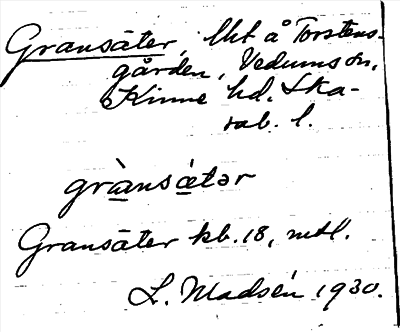 Gransäter, lht å Torstens-
gården, Vedums sn,
Kinne hd. Ska-
rab. l.
grànsätər
Gransäter kb. 18, mtl.
L. Madsén 1930.